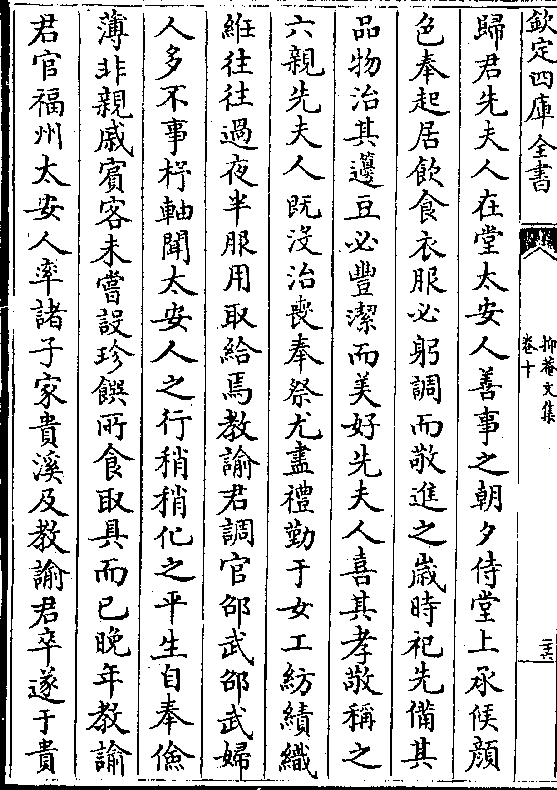 欽定四庫全書
抑菴文集
卷十
三三
歸君先夫人在堂太安人善事之朝夕侍堂上承候顔
色奉起居飲食衣服必躬調而敬進之歲時祀先備其
品物治其籩豆必豐潔而美好先夫人喜其孝敬稱之
六親先夫人既沒治喪奉祭尤盡禮勤于女工紡績織
絍往往過夜半服用取給焉教諭君調官邵武邵武婦
人多不事杼軸聞太安人之行稍稍化之平生自奉儉
薄非親戚賓客未嘗設珍饌所食取具而已晚年教諭
君官福州太安人率諸子家貴溪及教諭君卒遂于貴